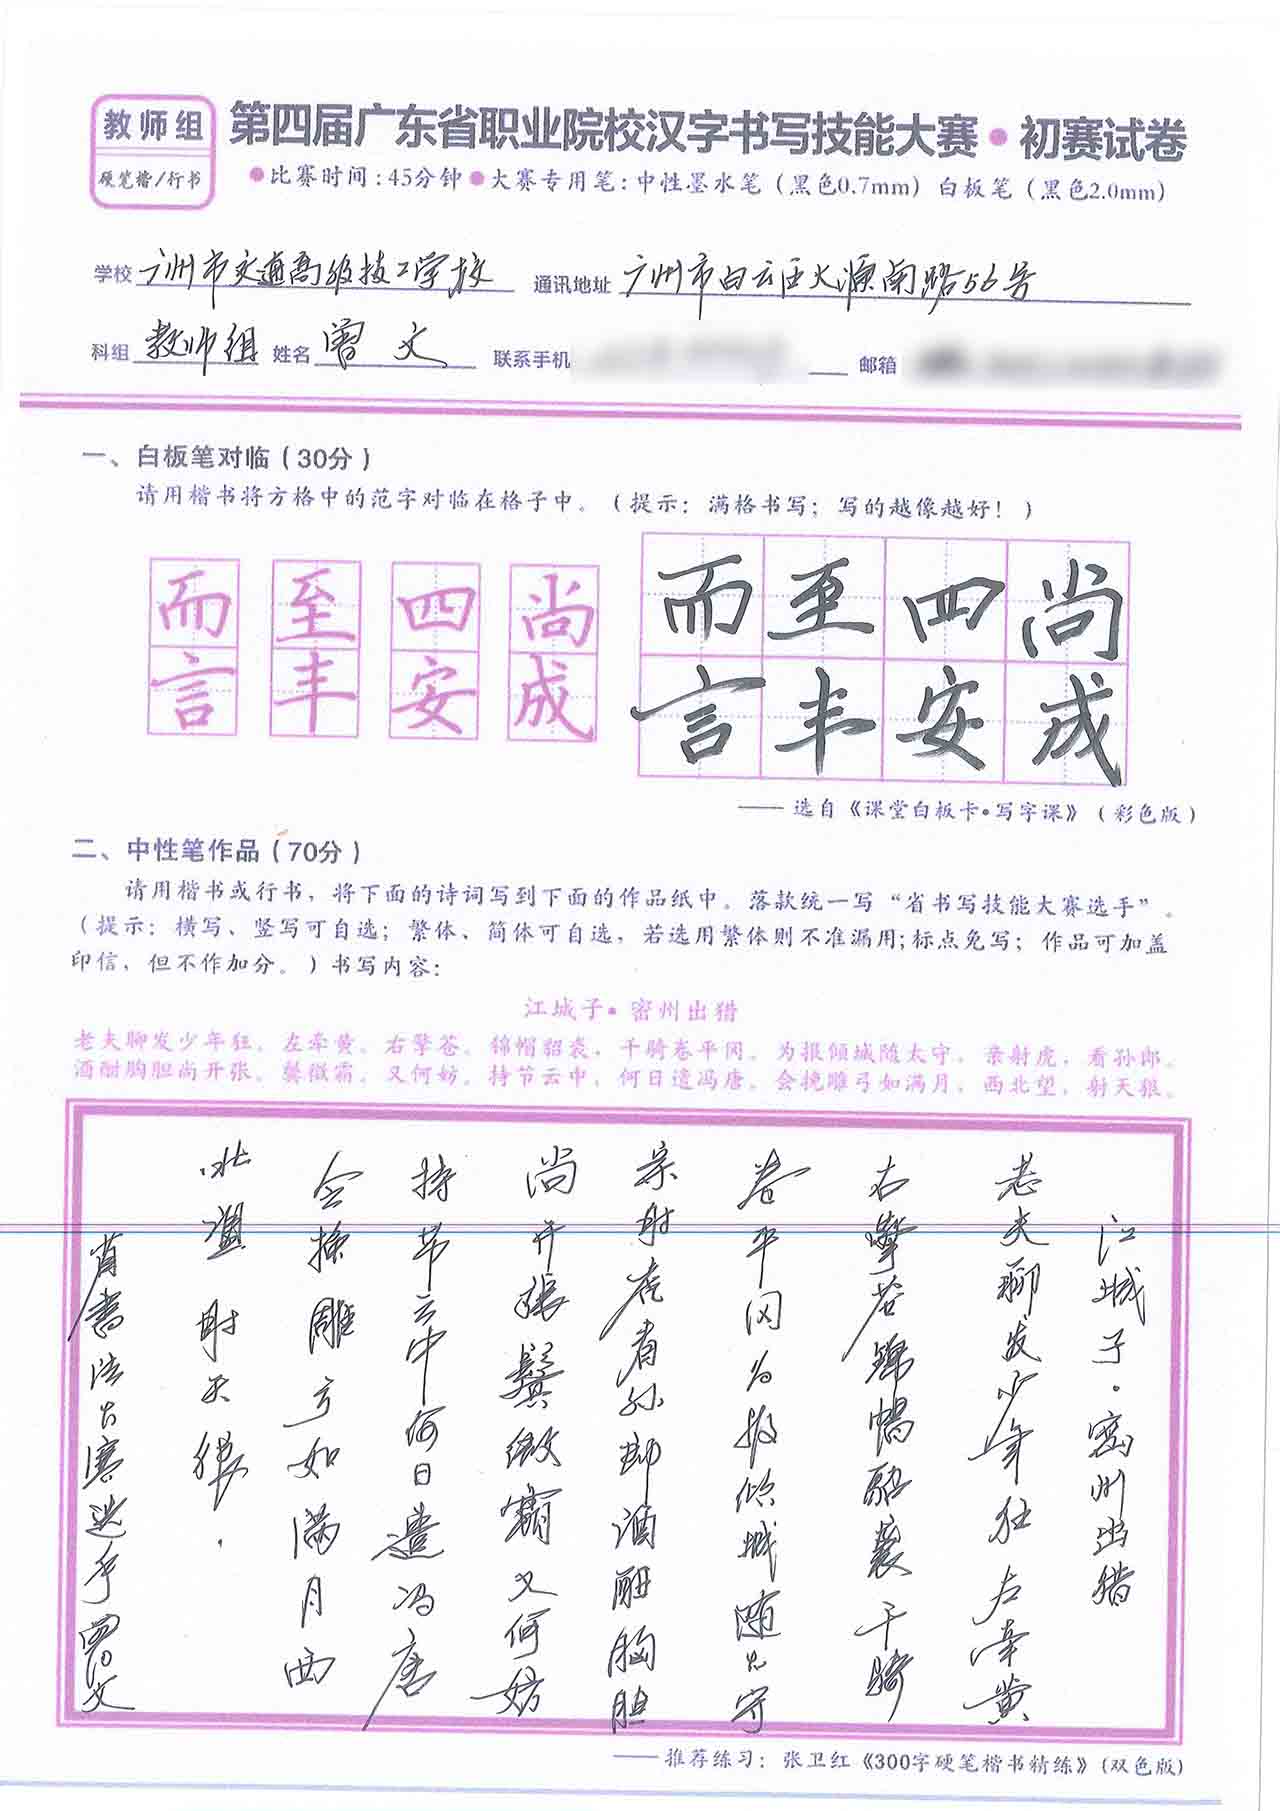 教师组
硬笔楷/行书
第四届广东省职业院校汉字书写技能大赛•初赛试卷
•比赛时间:45分钟•大赛专用笔:中性墨水笔（黑色0.7mm）白板笔（黑色2.0mm）
学校 广州市交通高级技工学校 通讯地址 广州市白云区大源南路56号
科组 教师组 姓名 曾文 联系手机 邮箱
一、白板笔对临（30分）
请用楷书将方格中的范字对临在格子中。（提示：满格书写；写的越像越好！）
而 至 四 尚 而 至 四 尚
言 丰 安 成 言 丰 安 成
——选自《课堂白板卡•写字课》（彩色版）
二、中性笔作品（70分）
请用楷书或行书，将下面的诗词写到下面的作品纸中。落款统一写“省书写技能大赛选手”。
（提示：横写、竖写可自选；繁体、简体可自选，若选用繁体则不准漏用;标点免写；作品可加盖
印信，但不作加分。）书写内容：
江城子•密州出猎
老夫聊发少年狂。左牵黄。右擎苍。锦帽貂裘，千骑卷平冈。为报倾城随太守。亲射虎，看孙郎。
酒酣胸胆尚开张。鬓微霜。又何妨。持节云中，何日遣冯唐。会挽雕弓如满月，西北望，射天狼。
江城子·密州出猎
老夫聊发少年狂左牵黄
右擎苍锦帽貂裘千骑
卷平冈为报倾城随太守
亲射虎看孙郎酒酣胸胆
尚开张鬓微霜又何妨
持节云中何日遣冯唐
会挽雕弓如满月西
北望射天狼.
省书法大赛选手曾文
——推荐练习：张卫红《300字硬笔楷书精练》(双色版)